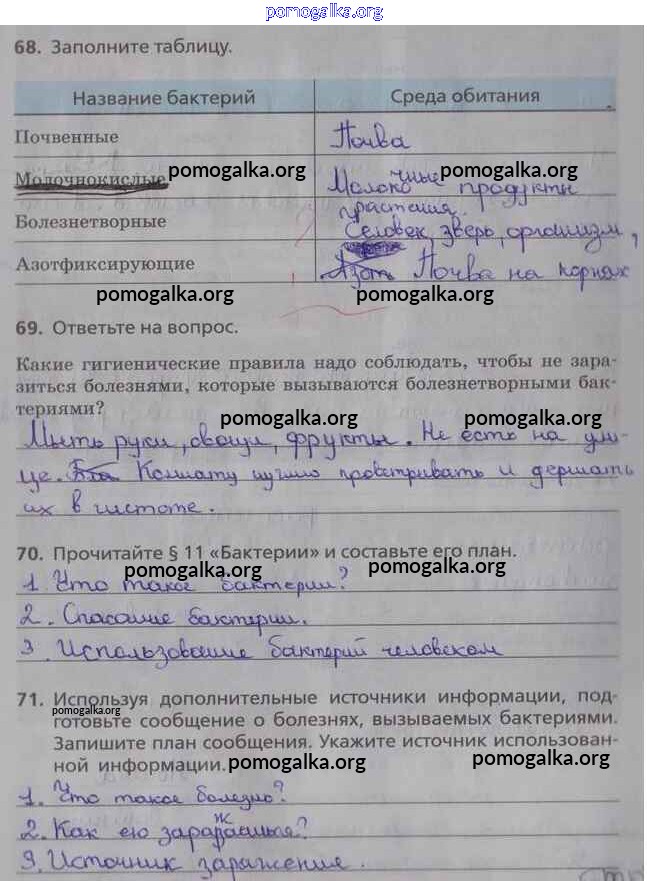 pomogalka.org
68. Заполните таблицу.
Название бактерий Среда обитания
Почвенные Почва
Молочнокислые pomogalka.org Молочные продукты pomogalka.org
растения.
Болезнетворные Человек, зверь, организм,
Азотфиксирующие Азот Почва на корнях
pomogalka.org pomogalka.org
69. Ответьте на вопрос.
Какие гигиенические правила надо соблюдать, чтобы не зара-
зиться болезнями, которые вызываются болезнетворными бак-
териями?
pomogalka.org pomogalka.org
Мыть руки, овощи, фрукты. Не есть на ули-
це. Комнату нужно проветривать и держать
их в чистоте.
70. Прочитайте § 11 «Бактерии» и составьте его план.
pomogalka.org pomogalka.org
1. Что такое бактерии?
2. Спасание бактерии.
3. Использование бактерий человеком
71. Используя дополнительные источники информации, под-
pomogalka.org
готовьте сообщение о болезнях, вызываемых бактериями.
Запишите план сообщения. Укажите источник использован-
ной информации.
pomogalka.org pomogalka.org
1. Что такое болезнь?
2. Как ею заражаешься?
3. Источник заражения.